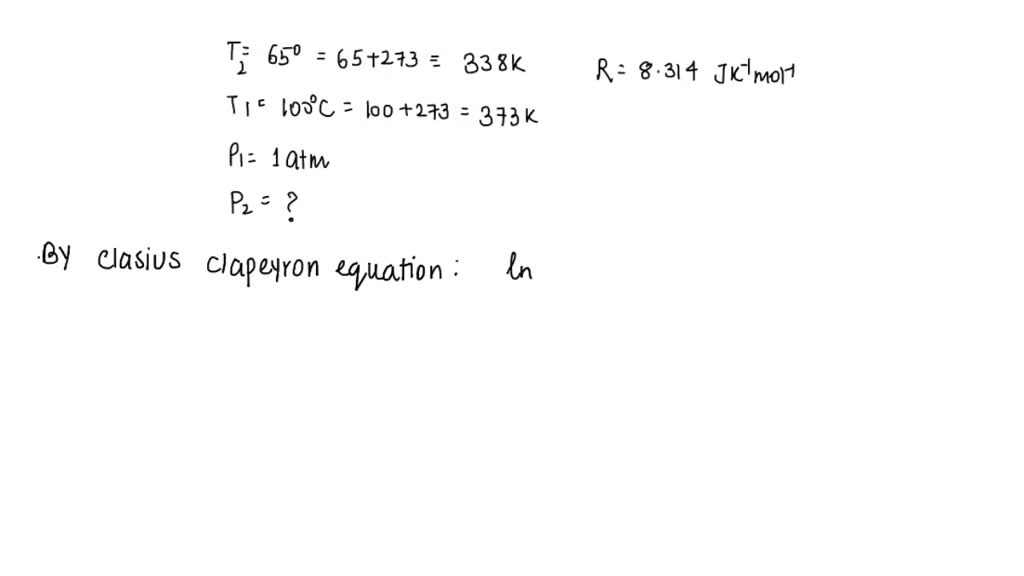 T₂ = 65⁰ = 65+273 = 338K
R = 8.314 JK⁻¹mol⁻¹
T₁ = 100°C = 100+273 = 373K
P₁ = 1atm
P₂ = ?
.By clasius clapeyron equation : ln